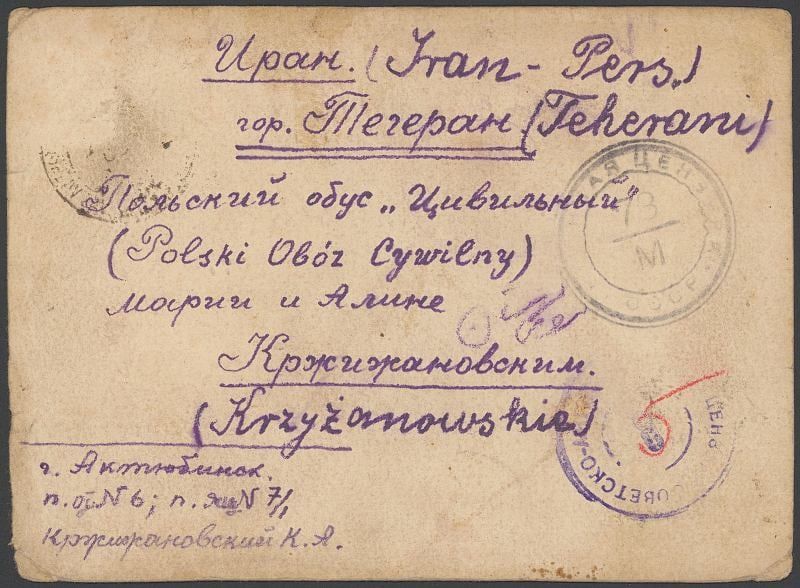 Иран. (Iran - Pers.)
гор. Тегеран (Teherani)
Польский обус „Цивильный"
(Polski Obóz Cywilny)
Марии и Алине
Кржижановским.
(Krzyżanowskie)
г. Актюбинск.
п. от N 6; п. ящ N 7/1
Кржижановский К. А.
АЯ ЦЕНЗ
СССР
М
5
СОВЕТСКО-
ЦЕНЗ